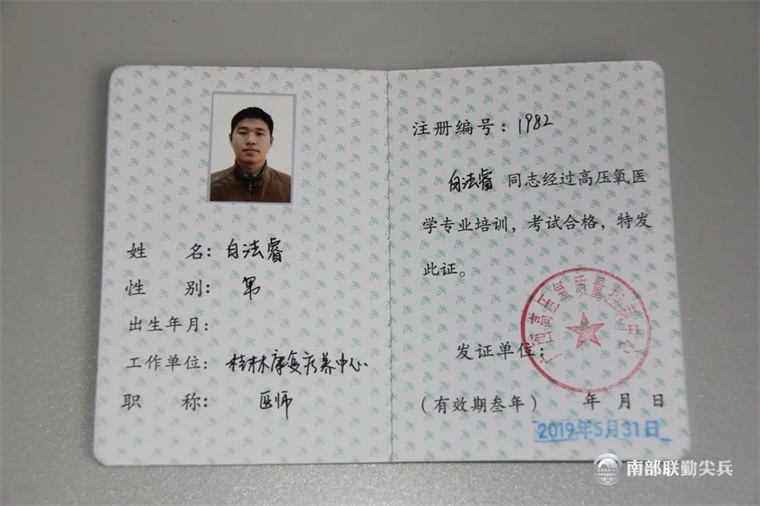 姓 名：白法睿
性 别：男
出生年月：
工作单位：桂林康复疗养中心
职 称：医师
注册编号：1982
白法睿 同志经过高压氧医
学专业培训，考试合格，特发
此证。
广西高压氧质量控制中心
发证单位：
（有效期叁年） 年 月 日
2019年5月31日
南部联勤尖兵